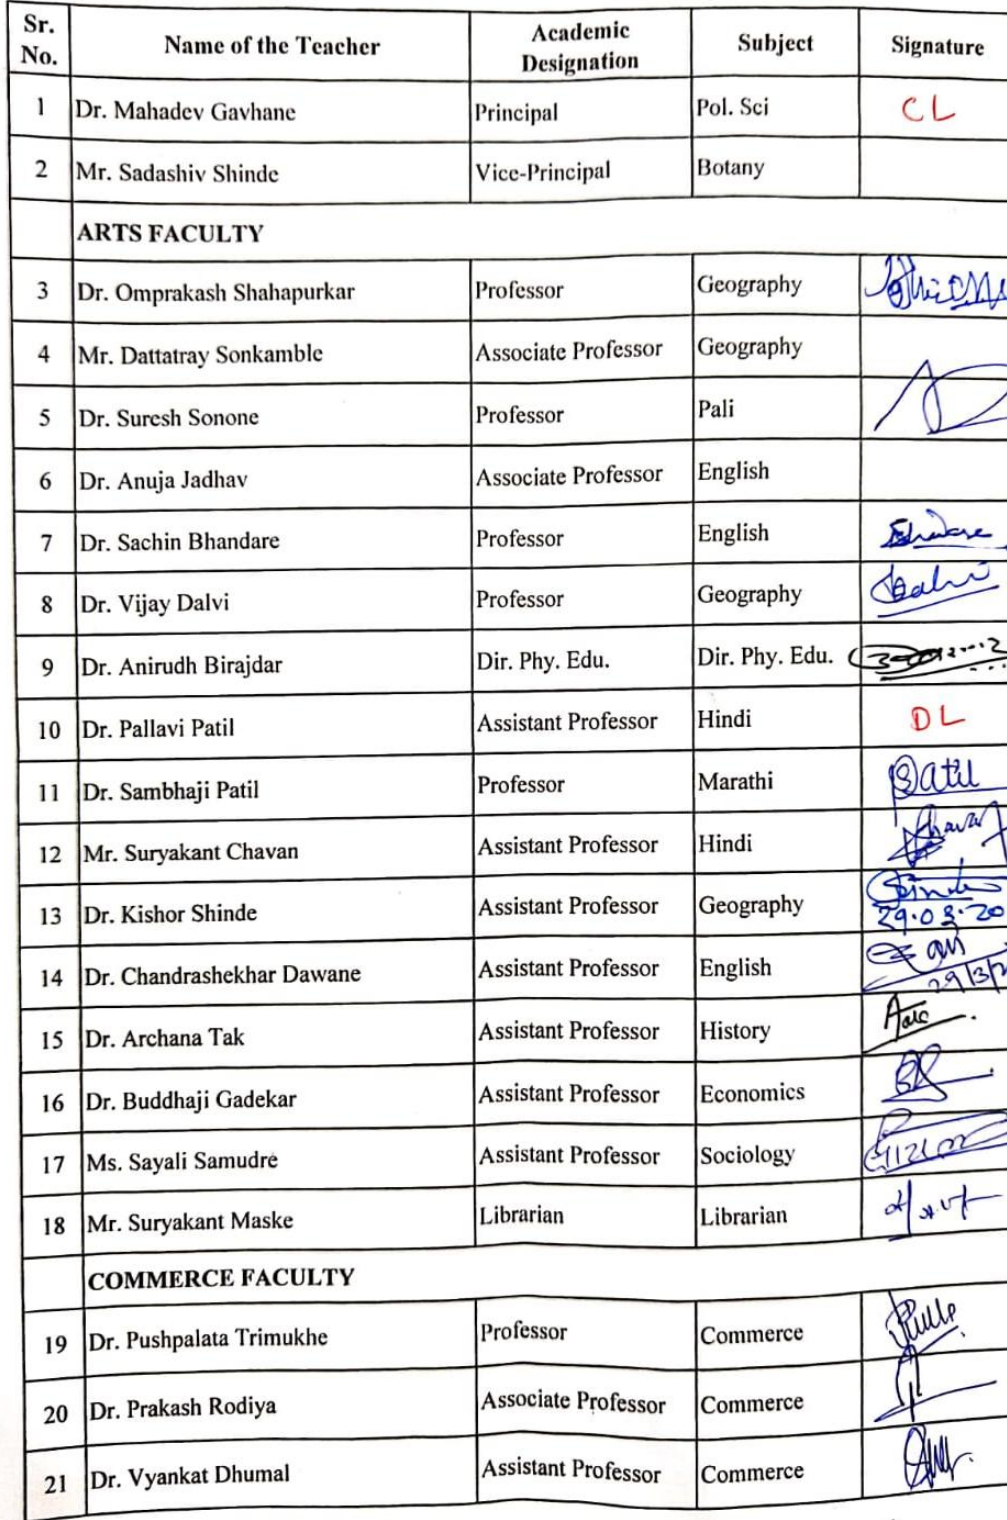 Sr. No. Name of the Teacher Academic Designation Subject Signature
1 Dr. Mahadev Gavhane Principal Pol. Sci CL
2 Mr. Sadashiv Shinde Vice-Principal Botany
ARTS FACULTY
3 Dr. Omprakash Shahapurkar Professor Geography
4 Mr. Dattatray Sonkamble Associate Professor Geography
5 Dr. Suresh Sonone Professor Pali
6 Dr. Anuja Jadhav Associate Professor English
7 Dr. Sachin Bhandare Professor English
8 Dr. Vijay Dalvi Professor Geography
9 Dr. Anirudh Birajdar Dir. Phy. Edu. Dir. Phy. Edu.
10 Dr. Pallavi Patil Assistant Professor Hindi DL
11 Dr. Sambhaji Patil Professor Marathi Patil
12 Mr. Suryakant Chavan Assistant Professor Hindi
13 Dr. Kishor Shinde Assistant Professor Geography 29.03.20
14 Dr. Chandrashekhar Dawane Assistant Professor English 29/3/2
15 Dr. Archana Tak Assistant Professor History
16 Dr. Buddhaji Gadekar Assistant Professor Economics
17 Ms. Sayali Samudre Assistant Professor Sociology
18 Mr. Suryakant Maske Librarian Librarian
COMMERCE FACULTY
19 Dr. Pushpalata Trimukhe Professor Commerce
20 Dr. Prakash Rodiya Associate Professor Commerce
21 Dr. Vyankat Dhumal Assistant Professor Commerce